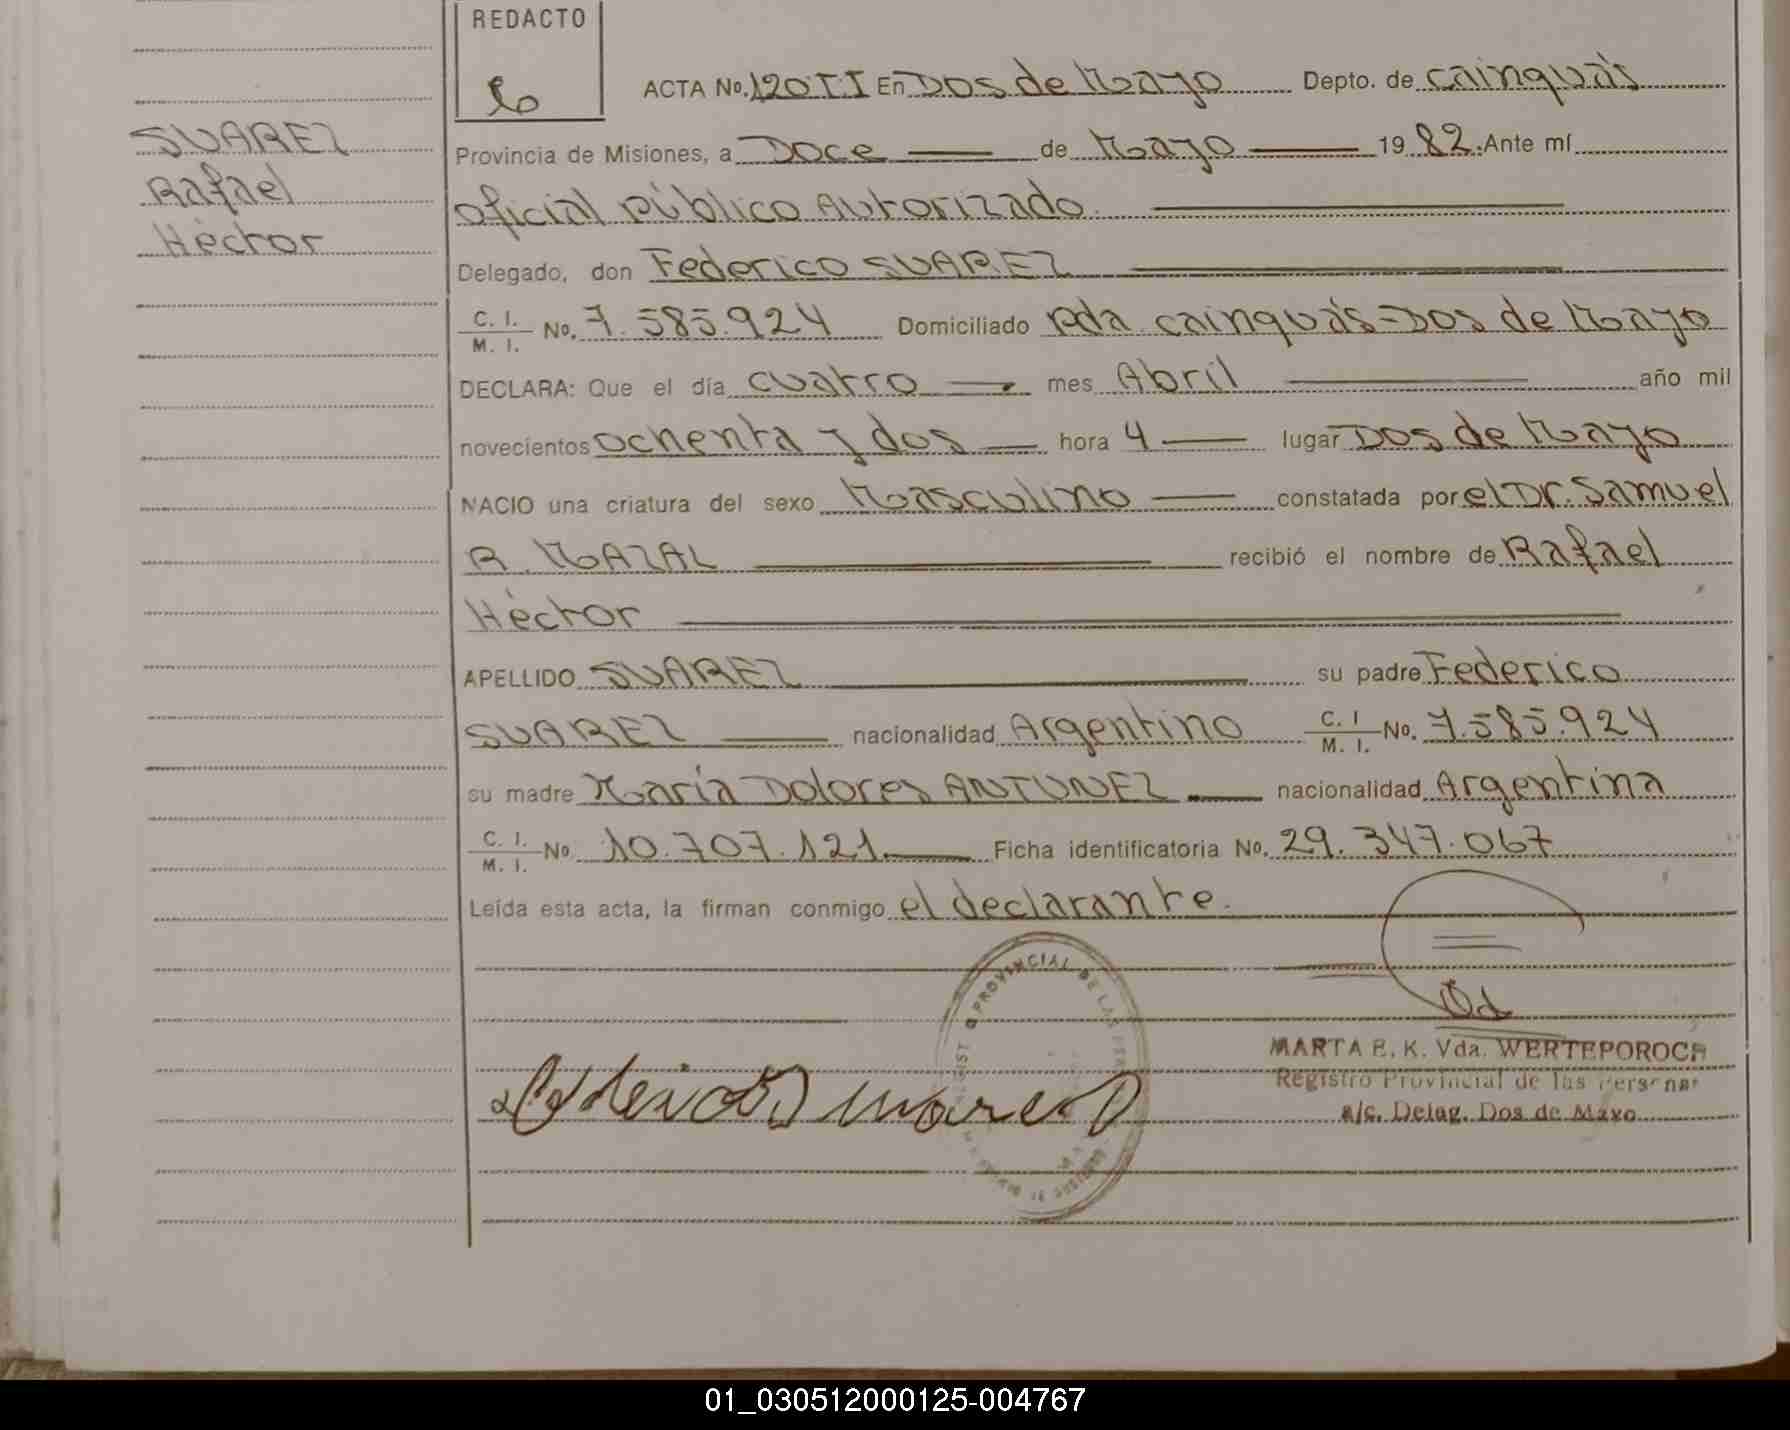 REDACTO
ACTA No. 120 II En Dos de Mayo Depto. de Cainguás
SUAREZ
Rafael
Héctor
Provincia de Misiones, a Doce de Mayo 1982. Ante mí
oficial Público Autorizado.
Delegado, don Federico SUAREZ
C. I.
M. I. No. 7.585.924 Domiciliado Pda. Cainguás-Dos de Mayo
DECLARA: Que el día cuatro mes Abril año mil
novecientos ochenta y dos hora 4 lugar Dos de Mayo
NACIO una criatura del sexo Masculino constatada por el Dr. Samuel
R. MAZAL recibió el nombre de Rafael
Héctor
APELLIDO SUAREZ su padre Federico
SUAREZ nacionalidad Argentino C. I M. I. No. 7.585.924
su madre María Dolores ANTUNEZ nacionalidad Argentina
C. I.
M. I. No 10.707.121 Ficha identificatoria No. 29.347.067
Leída esta acta, la firman conmigo el declarante.
PROVINCIAL DE LAS
MARTA E. K. Vda. WERTEPOROCH
Registro Provincial de las Personas
a/c. Deleg. Dos de Mayo
01_030512000125-004767